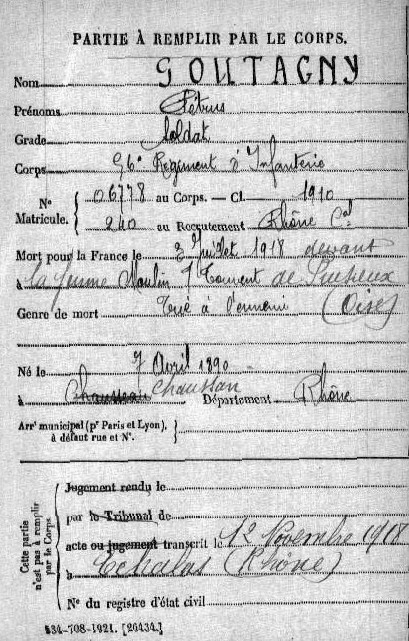 PARTIE À REMPLIR PAR LE CORPS.
Nom GOUTAGNY
Prénoms Pétrus
Grade Soldat
Corps 56e Régiment d'Infanterie
N° Matricule. { 06778 au Corps. — Cl. 1910
240 au Recrutement Rhône Cal
Mort pour la France le 3 Juillet 1918 devant
à la ferme Moulin s/ Touvent de
Genre de mort Tué à l'ennemi (Oise)
Né le 7 Avril 1890
à Chausseau Chaussan Département Rhône
Arrt municipal (pr Paris et Lyon), à défaut rue et N°. }
Cette partie n'est pas à remplir par le Corps. {
Jugement rendu le
par le Tribunal de
acte ou jugement transcrit le 12 Novembre 1918
à Echalas (Rhône)
N° du registre d'état civil
534-708-1921. [26434.]